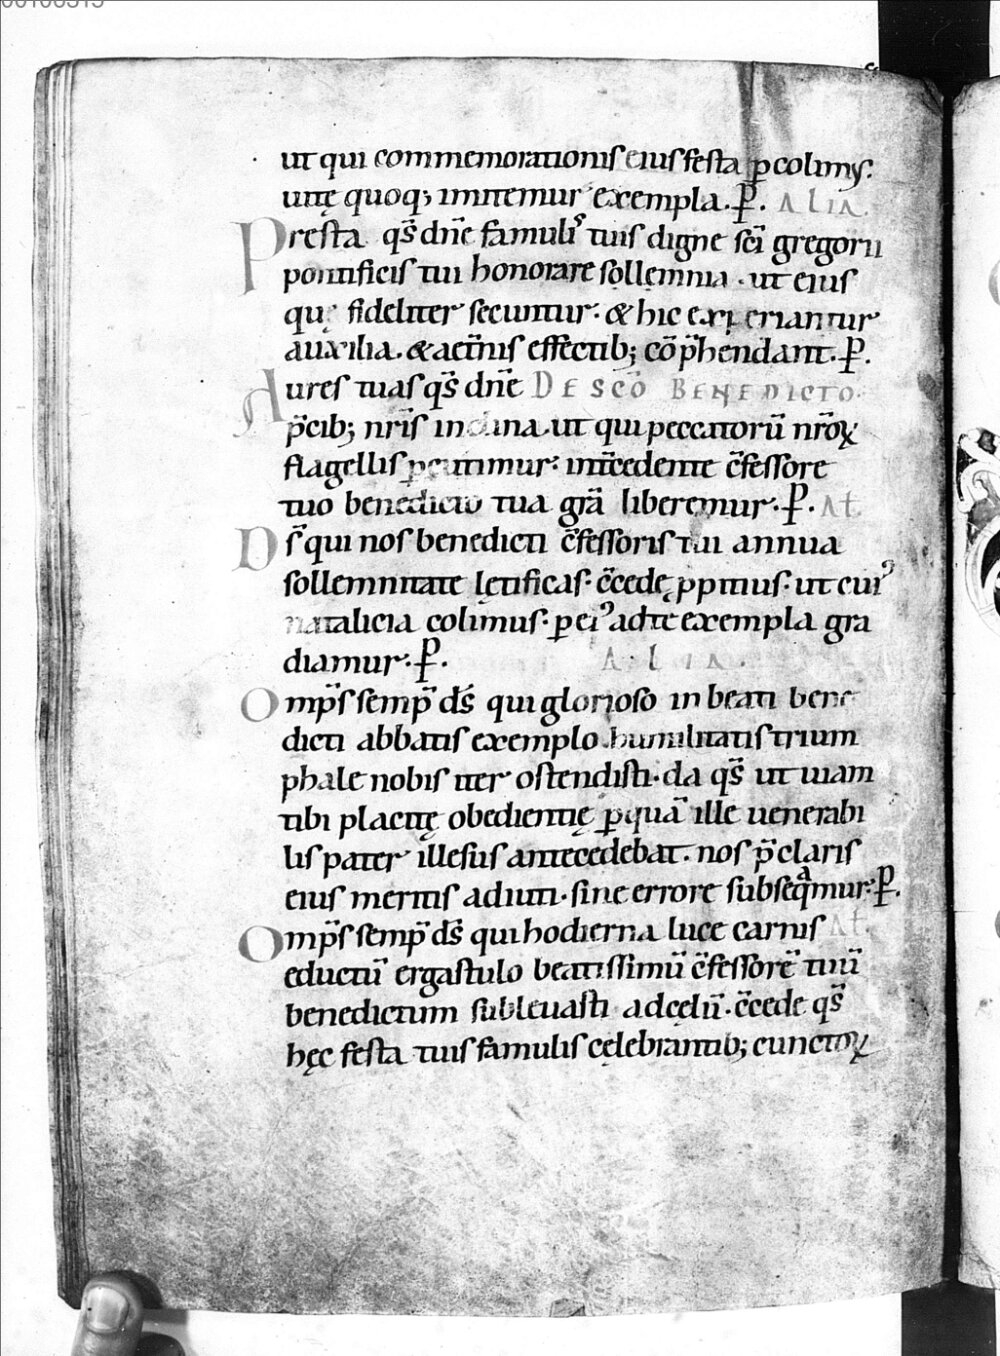 ut qui commemorationis eius festa p̱colimꝰ.
uitę quoq; imitemur exempla. P̱. ALIA.
Presta qs̄ dn̄e famulꝭ tuis digne sc̄i gregorii
pontificis tui honorare sollemnia. ut eius
quę fideliter secuntur. & hic experiantur
auxilia. & aet̄nis effectib; cōp̄hendant. P̱.
Aures tuas qs̄ dn̄e DE SCŌ BENEDICTO.
p̄cib; nr̄is inclina. ut qui peccatorū nr̄oꝝ
flagellis ꝑcutimur. int̄cedente c̄fessore
tuo benedicto tua gr̄a liberemur. P̱. AŁ.
Ds̄ qui nos benedicti c̄fessoris tui annua
sollemnitate lętificas. c̄cede ꝓpitius. ut cuiꝰ
natalicia colimus. ꝑ eiꝰ ad te exempla gra
diamur. P̱. ALIA.
Omp̄s semp̄ ds̄ qui glorioso in beati bene
dicti abbatis exemplo humilitatis trium
phale nobis iter ostendisti. da qs̄ ut uiam
tibi placitę obedientię ꝑ quā ille uenerabi
lis pater illesus antecedebat. nos p̄claris
eius meritis adiuti. sine errore subseqͣmur. P̱.
Omp̄s semp̄ ds̄ qui hodierna luce carnis AŁ.
eductū ergastulo beatissimū c̄fessorē tuū
benedictum subleuasti ad cęlū. c̄cede qs̄
hęc festa tuis famulis cęlebrantib; cunctoꝝ